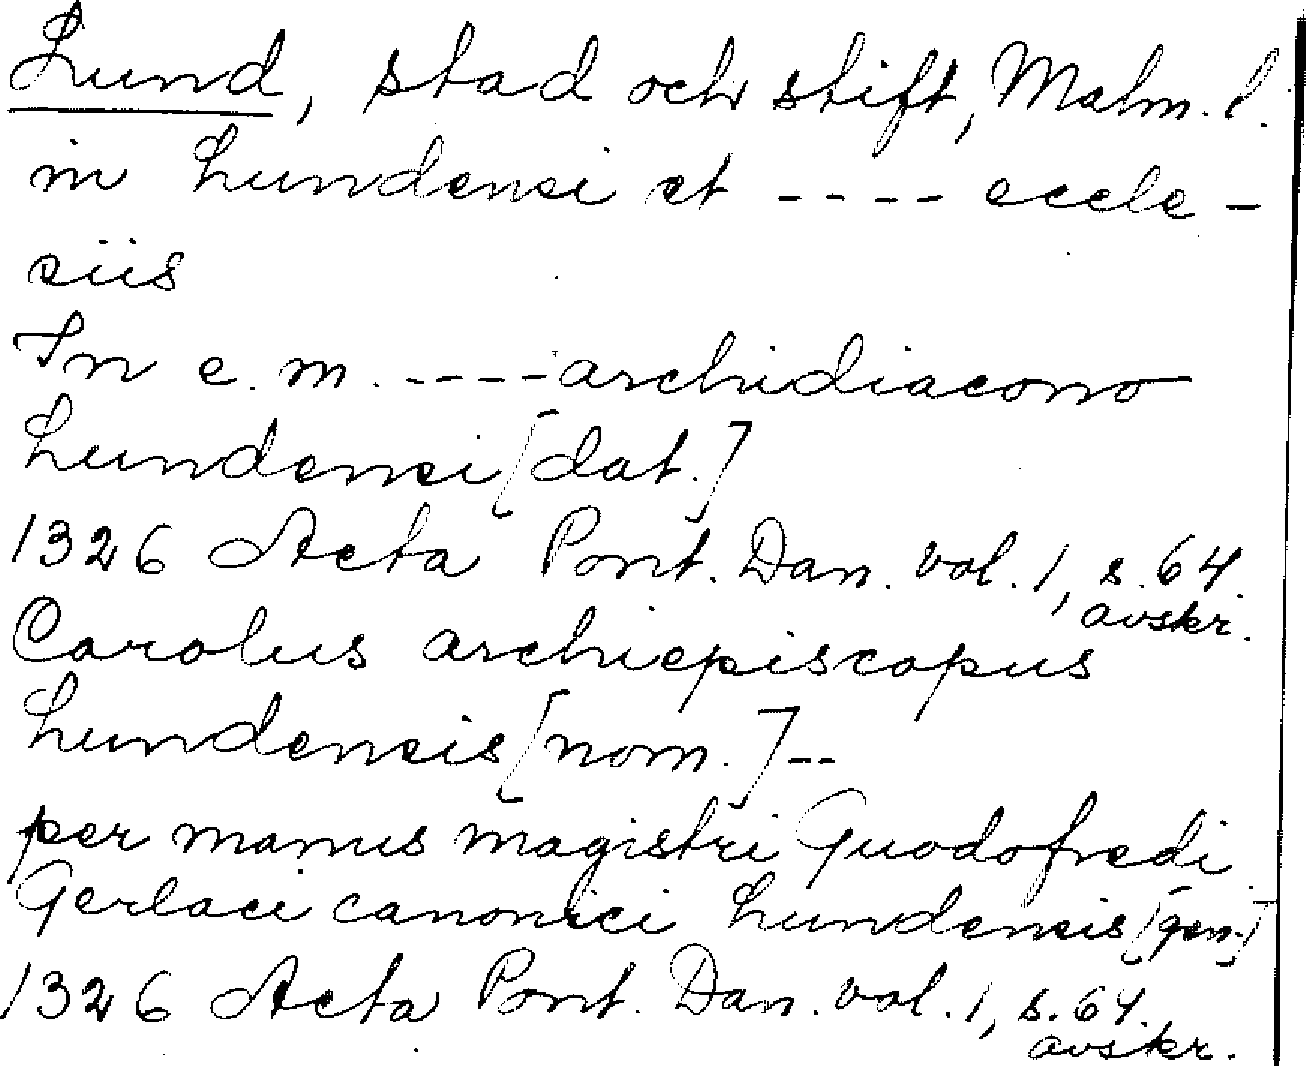 Lund, stad och stift, Malm. l.
in Lundensi et ---- eccle-
siis
In e. m. ---- archidiacono
Lundensi [dat.]
1326 Acta Pont. Dan. vol. 1, s. 64.
avskr.
Carolus archiepiscopus
Lundensis [nom.] --
per manus magistri Guodofredi
Gerlaci canonici Lundensis [gen.]
1326 Acta Pont. Dan. vol. 1, s. 64.
avskr.